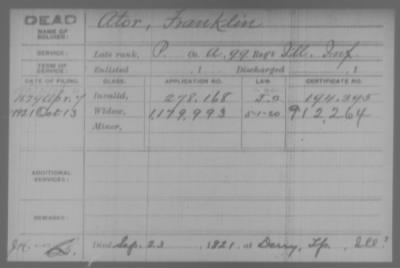 DEAD
NAME OF SOLDIER:
Ator, Franklin
SERVICE:
Late rank, P. Co. A, 99 Reg't Ill. Inf.
TERM OF SERVICE:
Enlisted , 1 Discharged , 1
DATE OF FILING. CLASS. APPLICATION NO. LAW. CERTIFICATE NO.
Apr. 7 Invalid, 278.168 194.395
1921 Oct 13 Widow, 1,179,993 5-1-20 912,264
Minor,
ADDITIONAL SERVICES:
REMARKS:
Died Sep. 23, 1921, at Derry, Tp., Ill?